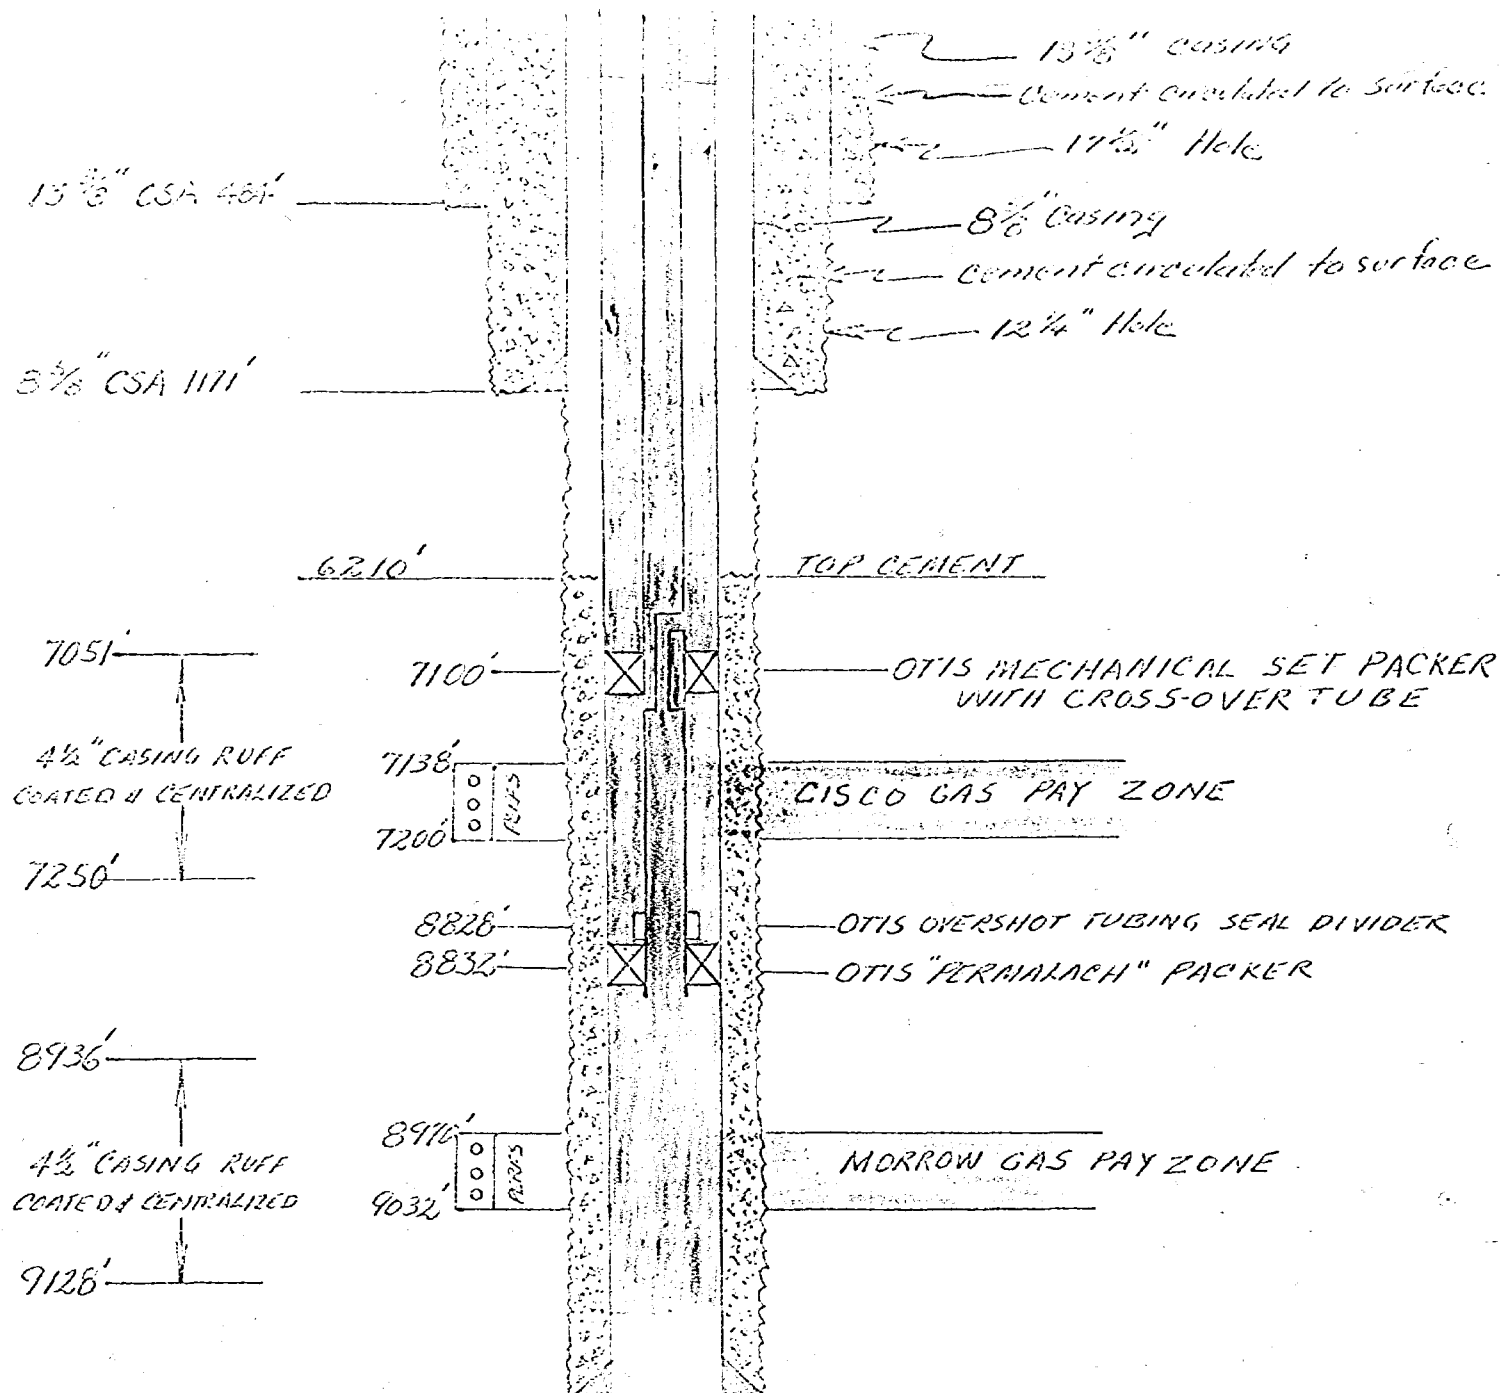 13 3/8" CASING
Cement circulated to surface
17 1/2" Hole
13 3/8" CSA 484'
8 5/8" Casing
Cement circulated to surface
12 1/4" Hole
8 5/8" CSA 1171'
6210'
TOP CEMENT
7051'
7100'
OTIS MECHANICAL SET PACKER
WITH CROSS-OVER TUBE
4 1/2" CASING RUFF
COATED & CENTRALIZED
7138'
PERFS
CISCO GAS PAY ZONE
7200'
7250'
8828'
OTIS OVERSHOT TUBING SEAL DIVIDER
8832'
OTIS "PERMALACH" PACKER
8936'
8970'
PERFS
MORROW GAS PAY ZONE
4 1/2" CASING RUFF
COATED & CENTRALIZED
9032'
9128'